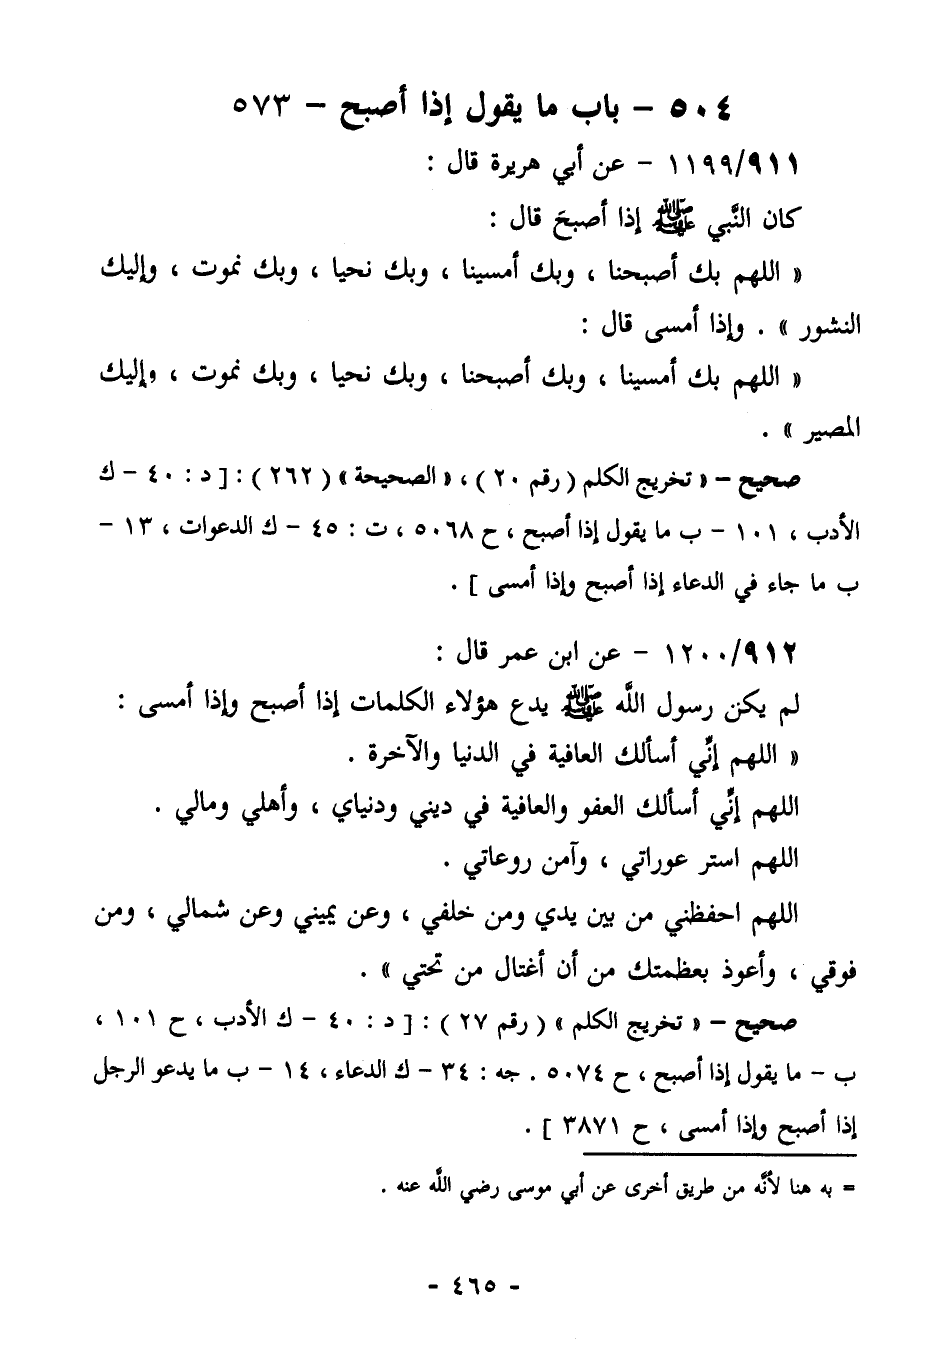 ٥٠٤ – باب ما يقول إذا أصبح – ٥٧٣
١١٩٩/٩١١ – عن أبي هريرة قال :
كان النَّبي ﷺ إذا أصبحَ قال :
« اللهم بك أصبحنا ، وبك أمسينا ، وبك نحيا ، وبك نموت ، وإليك
النشور » . وإذا أمسى قال :
« اللهم بك أمسينا ، وبك أصبحنا ، وبك نحيا ، وبك نموت ، وإليك
المصير » .
صحيح – « تخريج الكلم ( رقم ٢٠ ) ، « الصحيحة » ( ٢٦٢ ) : [ د : ٤٠ – ك
الأدب ، ١٠١ – ب ما يقول إذا أصبح ، ح ٥٠٦٨ ، ت : ٤٥ – ك الدعوات ، ١٣ –
ب ما جاء في الدعاء إذا أصبح وإذا أمسى ] .
١٢٠٠/٩١٢ – عن ابن عمر قال :
لم يكن رسول اللَّه ﷺ يدع هؤلاء الكلمات إذا أصبح وإذا أمسى :
« اللهم إنِّي أسألك العافية في الدنيا والآخرة .
اللهم إنِّي أسألك العفو والعافية في ديني ودنياي ، وأهلي ومالي .
اللهم استر عوراتي ، وآمن روعاتي .
اللهم احفظني من بين يدي ومن خلفي ، وعن يميني وعن شمالي ، ومن
فوقي ، وأعوذ بعظمتك من أن أغتال من تحتي » .
صحيح – « تخريج الكلم » ( رقم ٢٧ ) : [ د : ٤٠ – ك الأدب ، ح ١٠١ ،
ب – ما يقول إذا أصبح ، ح ٥٠٧٤ . جه : ٣٤ – ك الدعاء ، ١٤ – ب ما يدعو الرجل
إذا أصبح وإذا أمسى ، ح ٣٨٧١ ] .
= به هنا لأنَّه من طريق أخرى عن أبي موسى رضي اللَّه عنه .
- ٤٦٥ -